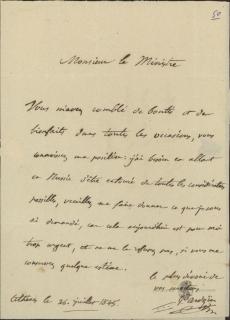 50
Monsieur le Ministre
Vous m'avez comblé de bonté et de
bienfaits dans toute les occasions, vous
connaissez ma position: j'ai besoin en allant
en Russie d'être entouré de toute les considérations
possibles, veuillez me faire donner ce que je vous
ai demandé, car cela aujourd'hui est pour moi
trop urgent, et ne me refusez pas, si vous me
conservez quelque estime.
le plus dévoué de
vos
Athènes le 26. juillet 1845